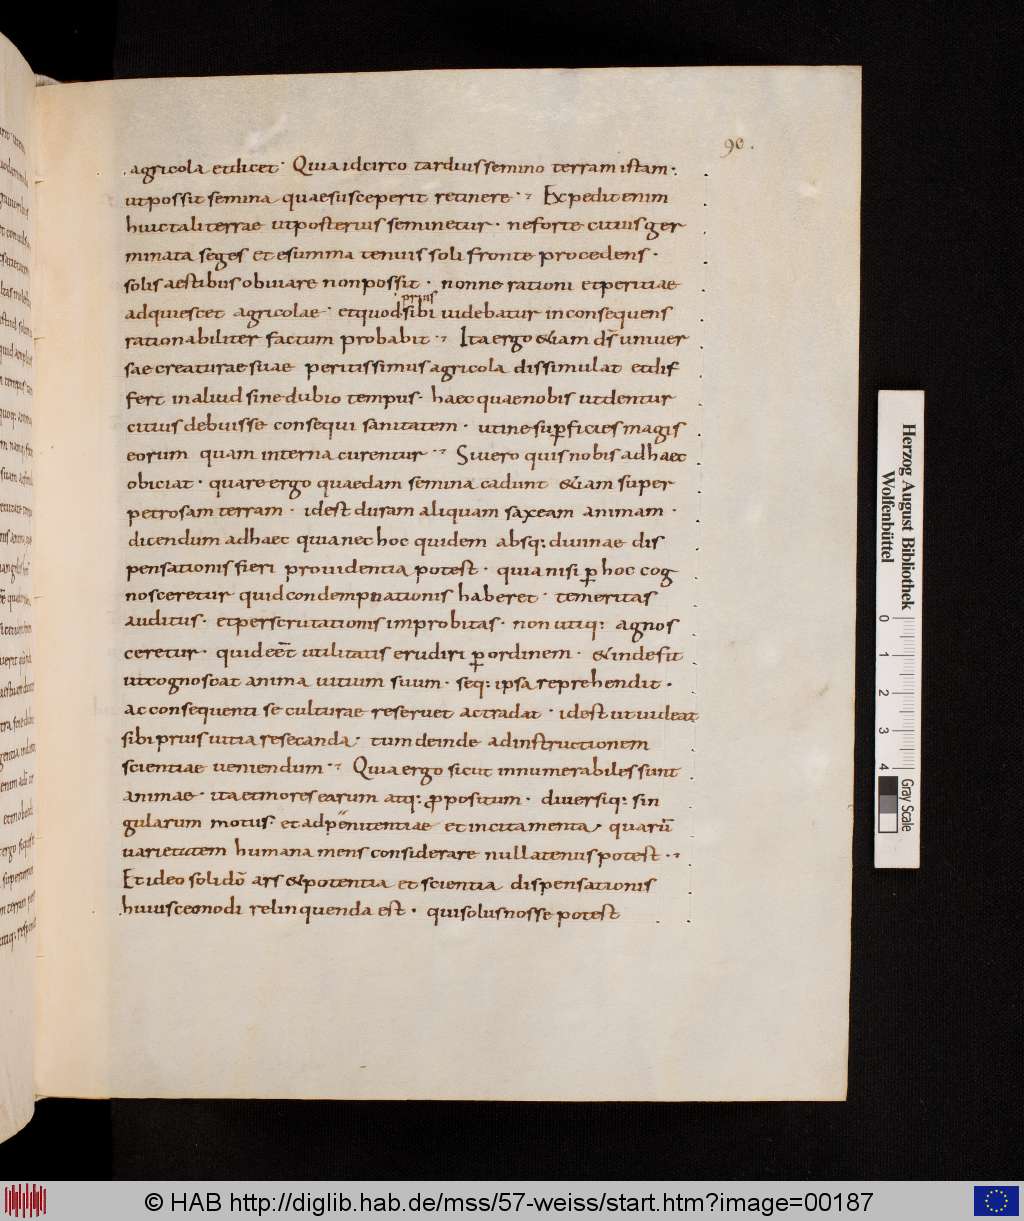 90.
agricola et dicet· Quia idcirco tardius semino terram istam·
ut possit semina quae susceperit retinere· Expedit enim
huic tali terrae ut posterius seminetur· ne forte citius ger
minata seges et e summa tenuis soli fronte procedens·
solis aestibus obuiare non possit· nonne rationi et peritiae
prius
adquiescet agricolae· et quod sibi uidebatur inconsequens
rationabiliter factum probabit· Ita ergo &iam d̄s uniuer
sae creaturae suae peritissimus agricola dissimulat et dif
fert in aliud sine dubio tempus· haec quae nobis uidentur
citius debuisse consequi sanitatem· uti ne suꝑficies magis
eorum quam interna curentur· Si uero quis nobis ad haec
obiciat· quare ergo quaedam semina cadunt &iam super
petrosam terram· id est duram aliquam saxeam animam·
dicendum ad haec quia nec hoc quidem absq: diuinae dis
pensationis fieri prouidentia potest· quia nisi ꝑ hoc cog
nosceretur quid condempnationis haberet· temeritas
auditus· et perscrutationis improbitas· non utiq: agnos
ceretur· quid eēt utilitatis erudiri ꝑ ordinem· & inde fit
ut cognoscat anima uitium suum· seq: ipsa reprehendit·
ac consequenti se culturae reseruet ac tradat· id est ut uideat
sibi prius uitia resecanda· tum deinde ad instructionem
scientiae ueniendum· Quia ergo sicut innumerabiles sunt
animae· ita et mores earum atq: ꝓpositum· diuersiq: sin
gularum motus· et ad penitentiae et incitamenta· quarū
uarietatem humana mens considerare nullatenus potest·
Et ideo soli dō ars & potentia et scientia dispensationis
huiuscemodi relinquenda est· qui solus nosse potest
Herzog August Bibliothek
Wolfenbüttel
0 1 2 3 4
Gray Scale
© HAB http://diglib.hab.de/mss/57-weiss/start.htm?image=00187